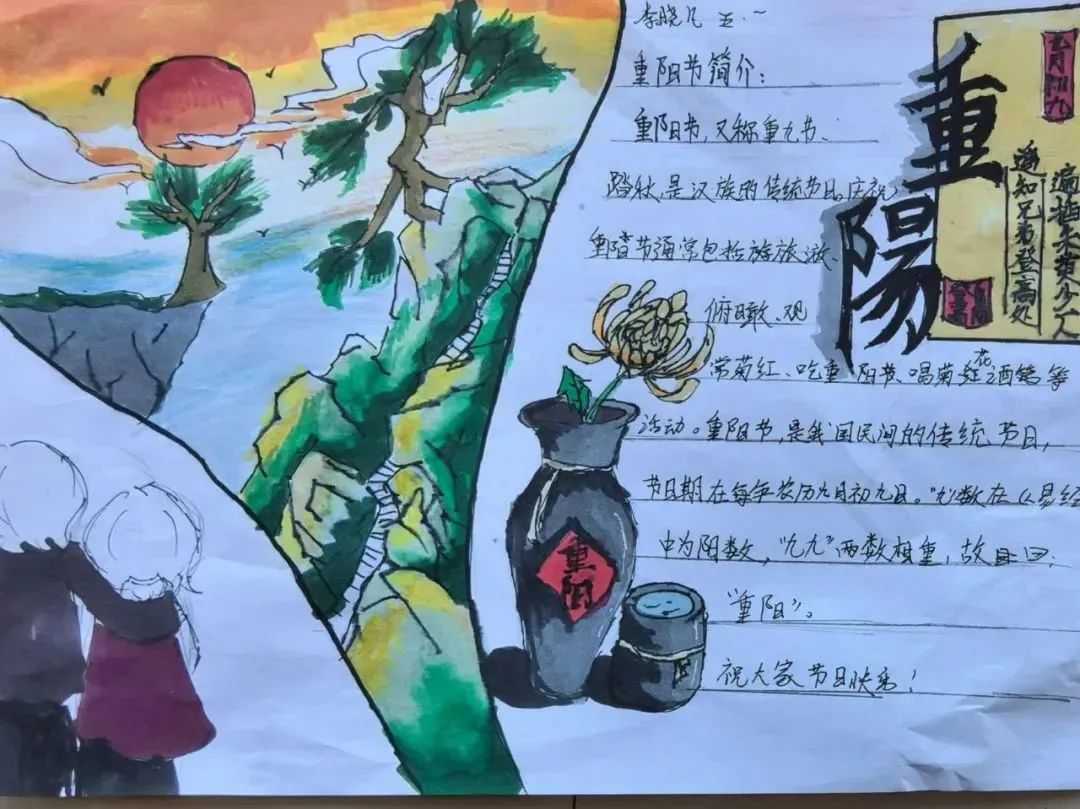 李晓凡 五·一
重阳节简介：
重阳节，又称重九节、
踏秋，是汉族的传统节日。庆祝
重阳节通常包括游旅游、
俯瞰、观
赏菊红、吃重阳节、喝菊花酒等
活动。重阳节，是我国民间的传统节日，
节日期在每年农历九月初九日。“九”数在《易经
中为阳数，“九九”两数相重，故曰：
“重阳”。
祝大家节日快乐！
重陽
遥知兄弟登高处
遍插朱萸少一人
重阳